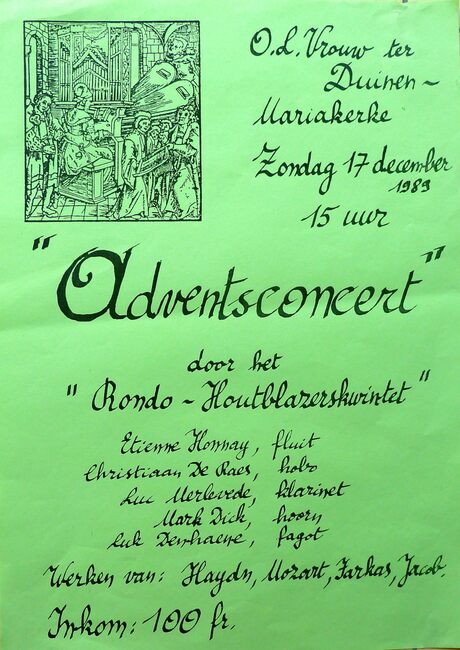 O.L. Vrouw ter
Duinen -
Mariakerke
Zondag 17 december
1989
15 uur
"Adventsconcert"
door het
"Rondo - Houtblazerskwintet"
Etienne Honnay, fluit
Christiaan De Raes, hobo
Luc Merlevede, klarinet
Mark Dick, hoorn
Luk fagot
Werken van: Haydn, Mozart, Farkas, Jacob.
Inkom: 100 fr.